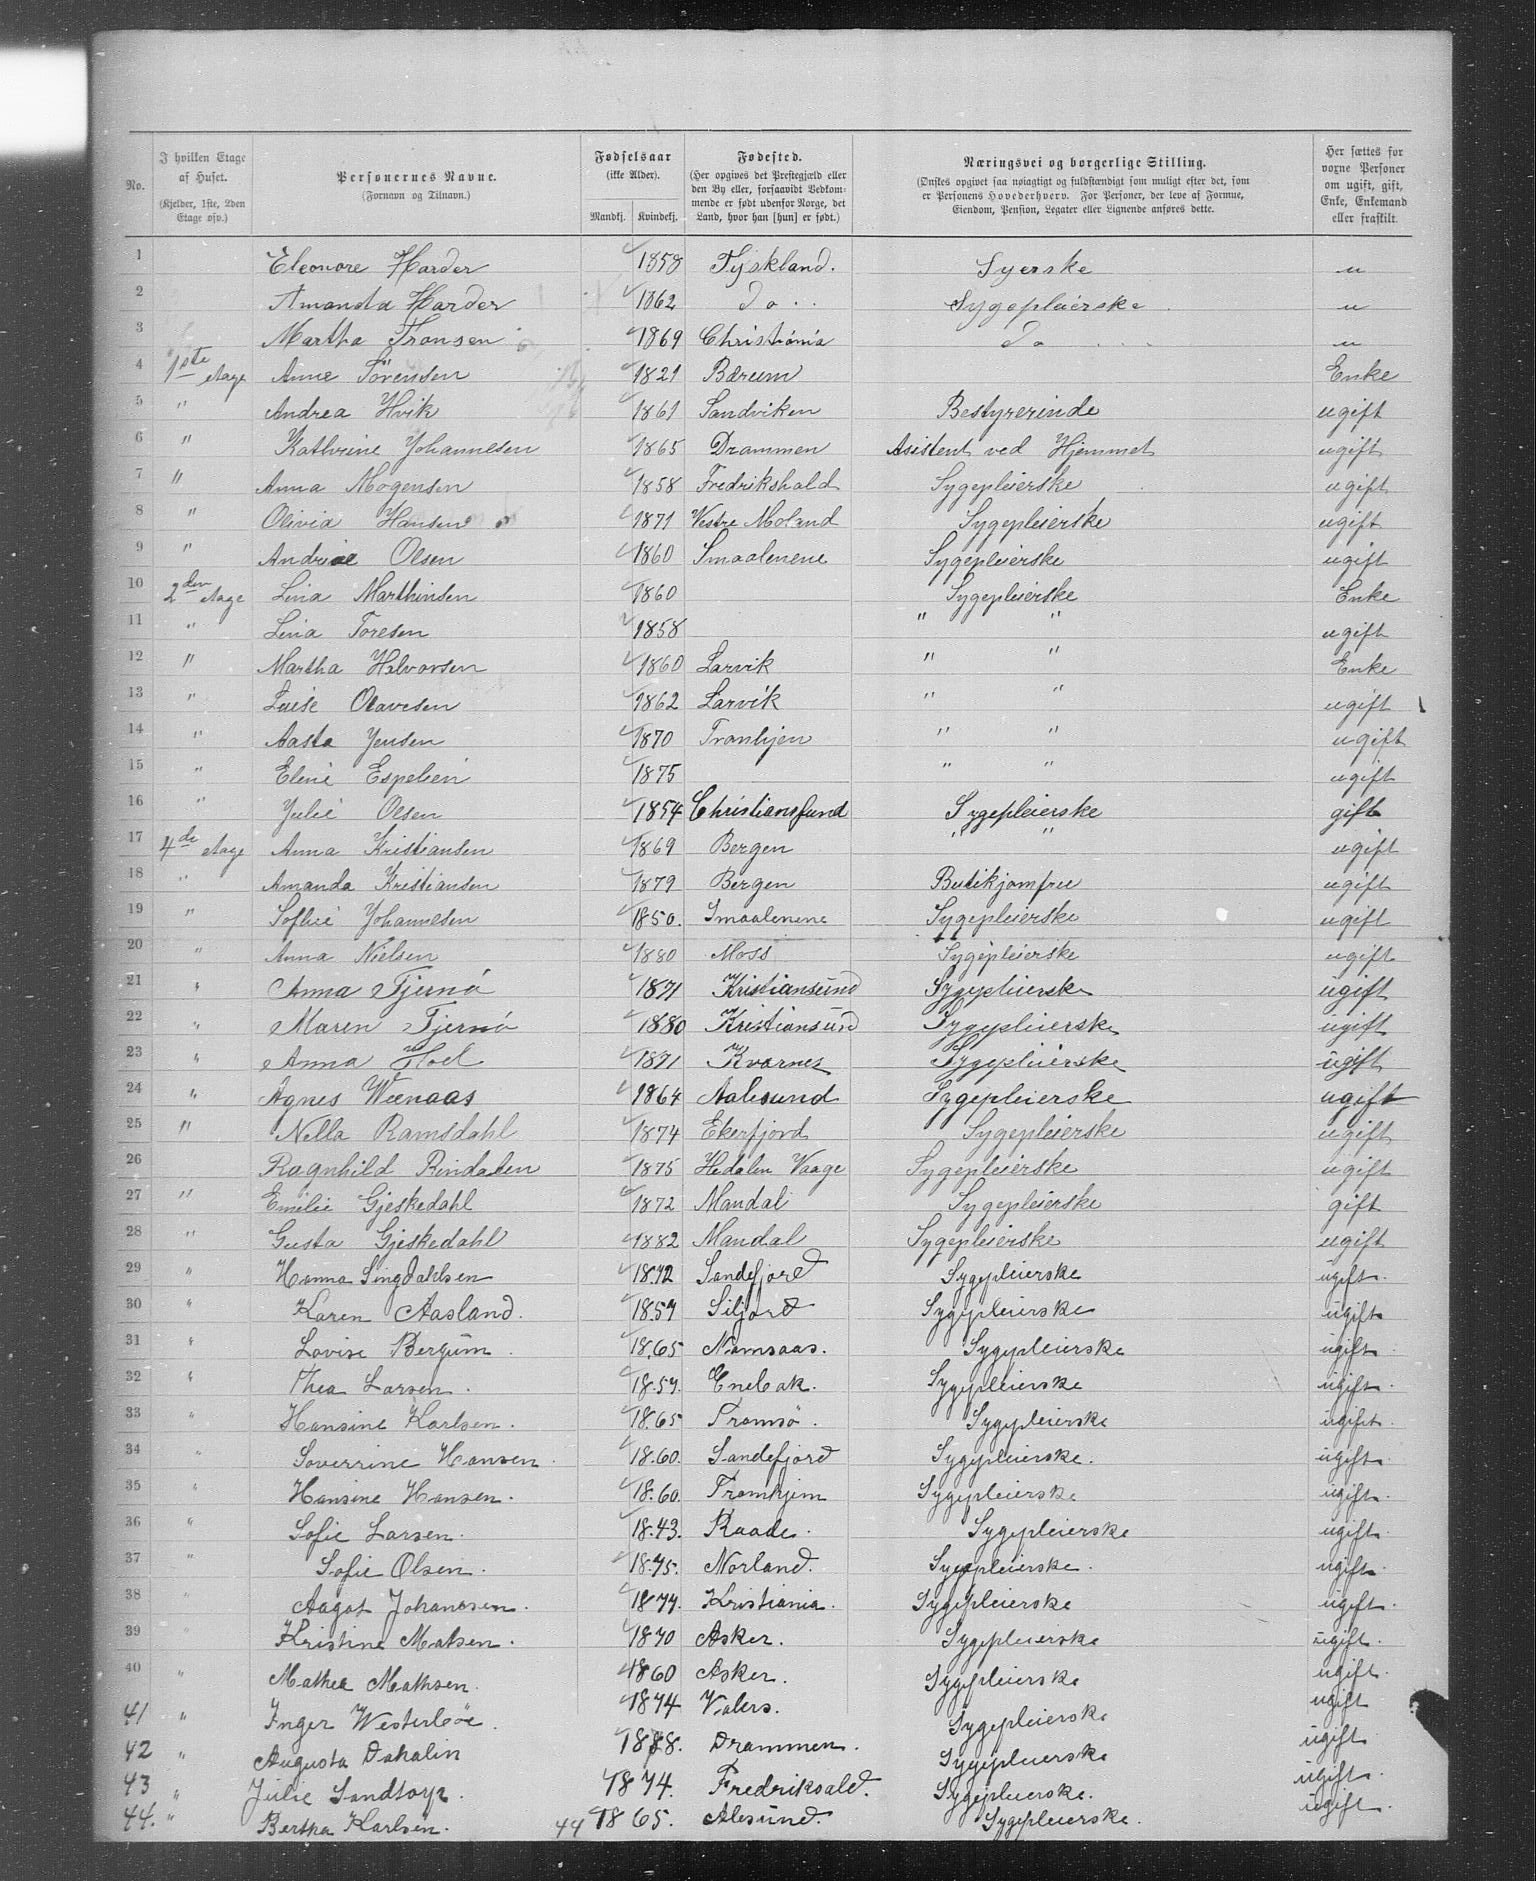 No. | I hvilken Etage af Huset. (Kjelder, 1ste, 2den Etage osv.) | Personernes Navne. (Fornavn og Tilnavn.) | Fødselsaar (ikke Alder). Mandkj. Kvindekj. | Fødested. (Her opgives det Prestegjæld eller den By eller, forsaavidt Vedkommende er født udenfor Norge, det Land, hvor han [hun] er født.) | Næringsvei og borgerlige Stilling. (Ønskes opgivet saa nøiagtigt og fuldstændigt som muligt efter det, som er Personens Hovederhverv. For Personer, der leve af Formue, Eiendom, Pension, Legater eller Lignende anføres dette. | Her sættes for voxne Personer om ugift, gift, Enke, Enkemand eller fraskilt.
1 Eleonore Harder 1858 Tyskland. Syerske u
2 Amanda Harder 1862 do . . Sygepleierske u
3 Martha Fransen 1869 Christiania do u
4 1ste etage Anne Sörensen 1821 Bærum Enke
5 " Andrea Hvik 1861 Sandviken Bestyrerinde ugift
6 " Kathrine Johannesen 1865 Drammen Asistent ved Hjemmet ugift
7 " Anna Mogensen 1858 Fredrikshald Sygepleierske ugift
8 " Olivia Hansen 1871 Vestre Moland Sygepleierske ugift
9 " Andrine Olsen 1860 Smaalenene Sygepleierske ugift
10 2den etage Lina Marthinsen 1860 Sygepleierske Enke
11 " Lina Toresen 1858 " " ugift
12 " Martha Halvorsen 1860 Larvik " " Enke
13 " Luise Olavesen 1862 Larvik " " ugift
14 " Aasta Jensen 1870 Tronhjen " " ugift
15 " Eline Espelien 1875 " " ugift
16 " Julie Olsen 1854 Christiansund Sygepleierske gift
17 4de etage Anna Kristiansen 1869 Bergen " " ugift
18 " Amanda Kristiansen 1879 Bergen Butikjomfru ugift
19 " Sofhie Johannesen 1850. Smaalenene Sygepleierske ugift
20 " Anna Nielsen 1880 Moss Sygepleierske ugift
21 " Anna Tjernö 1871 Kristiansund Sygepleierske ugift
22 " Maren Tjernö 1880 Kristiansund Sygepleierske ugift
23 " Anna Hoel 1871 Kvarnes Sygepleierske ugift
24 " Agnes Wenaas 1864 Aalesund Sygepleierske ugift
25 " Nella Ramsdahl 1874 Ekerfjord Sygepleierske ugift
26 Ragnhild Rindalen 1875 Hedalen Vaage Sygepleierske ugift
27 " Emilie Gjeskedahl 1872 Mandal Sygepleierske gift
28 " Gusta Gjeskedahl 1882 Mandal Sygepleierske ugift
29 " Hanna Singdahlsen 1872 Sandefjord Sygepleierske ugift.
30 " Karen Aasland. 1857 Siljord Sygepleierske ugift
31 " Lovise Bergum. 1865 Namsaas. Sygepleierske ugift
32 " Thea Larsen. 1857. Enebak. Sygepleierske ugift.
33 " Hansine Karlsen. 1865 Tromsö. Sygepleierske ugift.
34 " Soverrine Hansen. 1860. Sandefjord Sygepleierske. ugift.
35 " Hansine Hansen. 18.60. Tromhjem Sygepleierske ugift.
36 " Sofie Larsen. 18.43. Raade. Sygepleierske ugift.
37 " Sofie Olsen. 1875. Norland. Sygepleierske. ugift.
38 " Aagot Johanesen. 1877. Kristiania. Sygepleierske ugift.
39 " Kristine Matsen. 1870 Asker. Sygepleierske ugift.
40 " Mathea Mathsen. 1860 Asker. Sygepleierske ugift.
41 " Inger Westerlöe. 1874 Valers. Sygepleierske ugift
42 " Augusta Dahalin Drammen. Sygepleierske ugift
43 " Julie Sandtorp. 1874. Fredriksald. Sygepleierske. ugift.
44. " Bertha Karlsen. 44 1865. Alesund. Sygepleierske. ugift.